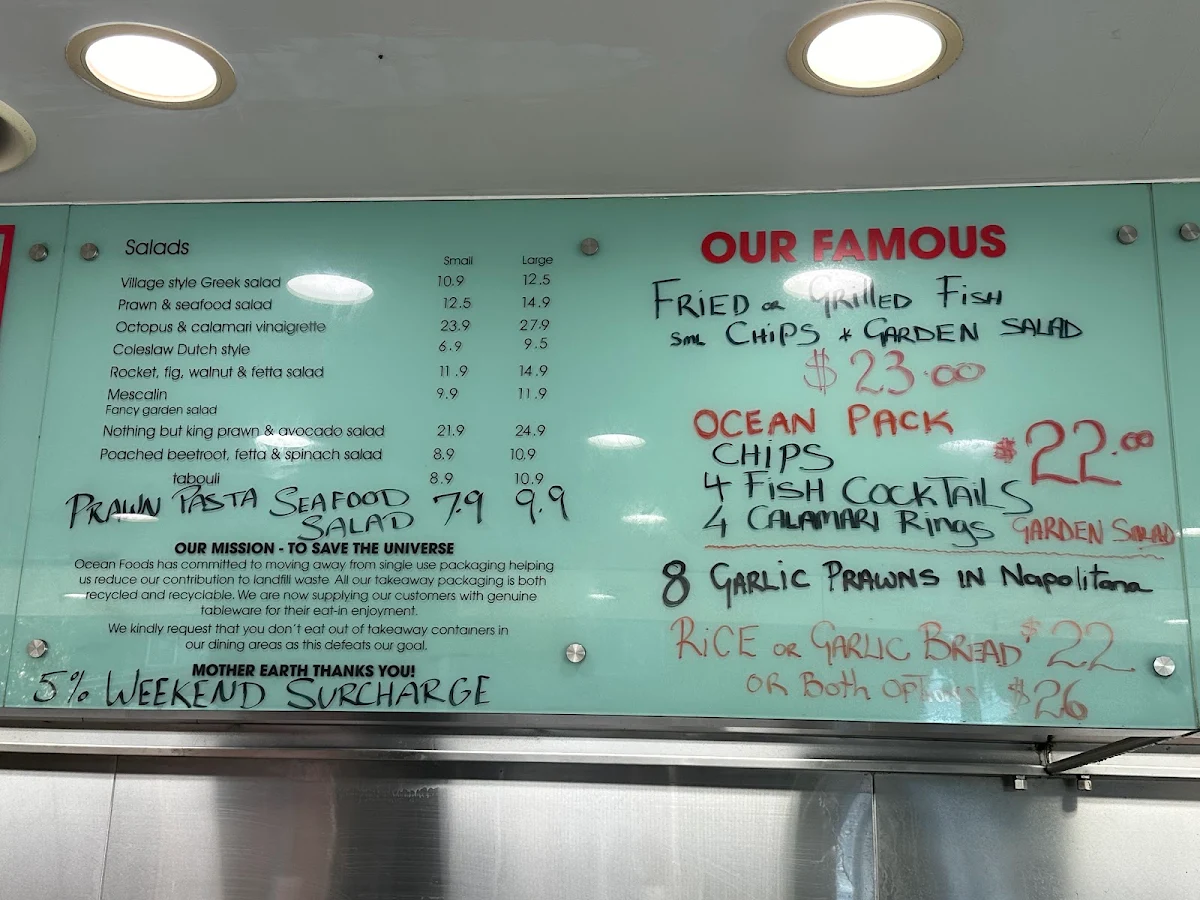 Salads
Small Large
Village style Greek salad 10.9 12.5
Prawn & seafood salad 12.5 14.9
Octopus & calamari vinaigrette 23.9 27.9
Coleslaw Dutch style 6.9 9.5
Rocket, fig, walnut & fetta salad 11.9 14.9
Mescalin 9.9 11.9
Fancy garden salad
Nothing but king prawn & avocado salad 21.9 24.9
Poached beetroot, fetta & spinach salad 8.9 10.9
tabouli 8.9 10.9
PRAWN PASTA SEAFOOD 7.9 9.9
SALAD
OUR MISSION - TO SAVE THE UNIVERSE
Ocean Foods has committed to moving away from single use packaging helping
us reduce our contribution to landfill waste. All our takeaway packaging is both
recycled and recyclable. We are now supplying our customers with genuine
tableware for their eat-in enjoyment.
We kindly request that you don't eat out of takeaway containers in
our dining areas as this defeats our goal.
MOTHER EARTH THANKS YOU!
5% WEEKEND SURCHARGE
OUR FAMOUS
FRIED OR GRILLED FISH
SML CHIPS * GARDEN SALAD
$23.00
OCEAN PACK
CHIPS $22.00
4 FISH COCKTAILS
4 CALAMARI RINGS GARDEN SALAD
8 GARLIC PRAWNS IN Napolitana
RICE OR GARLIC BREAD $22
OR Both Options $26